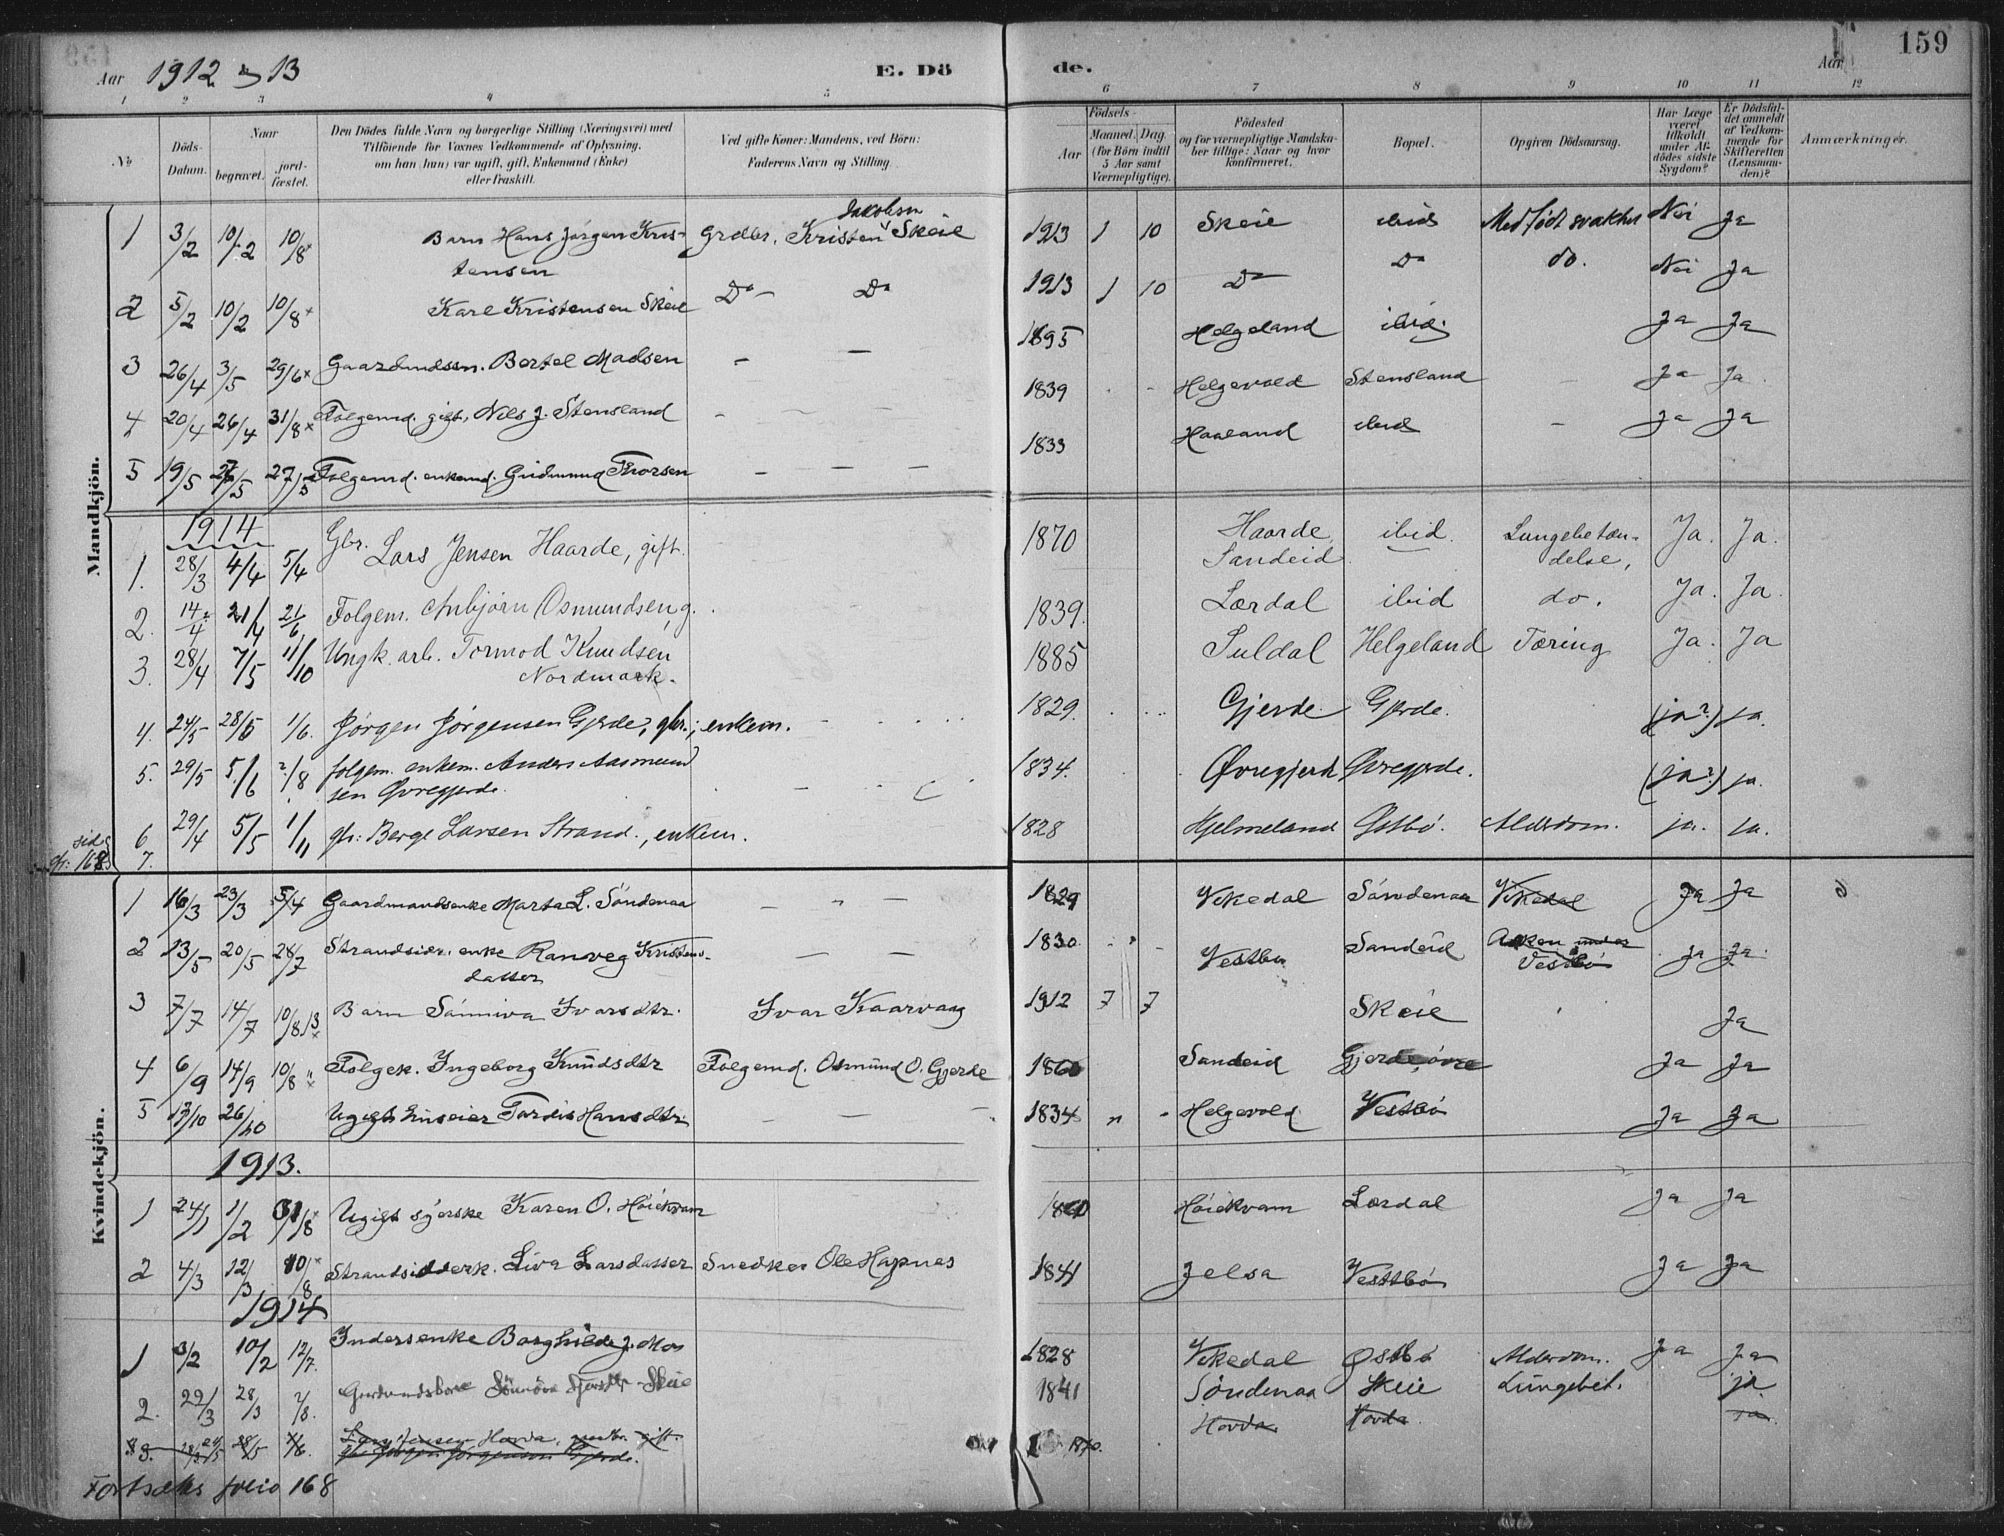 159
Aar 1912 & 13
E. Dö de.
Aar
1 2 3 4 5 6 7 8 9 10 11 12
No
Döds-Datum.
Naar
begravet.
jord-fæstet.
Den Dödes fulde Navn og borgerlige Stilling (Næringsvei) med
Tilföiende for Voxnes Vedkommende af Oplysning,
om han (hun) var ugift, gift, Enkemand (Enke)
eller fraskilt.
Ved gifte Koner: Mandens, ved Börn:
Faderens Navn og Stilling.
Födsels-
Aar
Maaned. Dag.
(for Börn indtil
5 Aar samt
Værnepligtige).
Födested
og for værnepligtige Mandska-
ber tillige: Naar og hvor
konfirmeret.
Bopæl.
Opgiven Dödsaarsag.
Har Læge
været
tilkaldt
under Af-
dödes sidste
Sygdom?
Er Dödsfal-
det anmeldt
af Vedkom-
mende for
Skifteretten
(Lensman-
den)?
Anmærkninger.
Mandkjön.
Jakobsen
1 3/2 10/2 10/8 x Barn Hans Jörgen Kris- Grdbr. Kristen Skeie 1913 1 10 Skeie ibid Medfödt svakhet Nei Ja
tensen
2 5/2 10/2 10/8 x Karl Kristensen Skeie Do - Do 1913 1 10 Do Do do. Nei Ja
3 26/4 3/5 29/6 x Gaardmdssn. Bertel Madsen - - 1895 Helgeland ibid. Ja Ja
4 20/4 26/4 31/8 x Folgemd. gift, Nils J. Stensland 1839 Helgevold Stensland - Ja Ja
5 19/5 27/5 27/5 Folgemd. enkemd. Gudmund Thorsen - - - 1833 Haaland ibid - Ja Ja
1914
1. 28/3 4/4 5/4 Gbr. Lars Jensen Haarde, gift. 1870 Haarde, Sandeid ibid. Lungebetæn-delse, Ja. Ja.
2. 14/4 21/4 21/6 Folgem. Anbjörn Osmundsen, g. 1839. Lærdal ibid do. Ja. Ja.
3. 28/4 7/5 11/10 Ungk. arb. Tormod Knudsen 1885 Suldal Helgeland Tæring Ja. Ja
Nordmark.
4. 24/5 28/5 1/6. Jørgen Jørgensen Gjerde, gbr., enkem. 1829. Gjerde Gjerde. (ja?) ja.
5. 29/5 5/6 2/8 folgem. enkem. Anders Aasmund 1834. Øvregjerd Øvregjerde. (ja?) ja.
sen Øvregjerde.
6. 29/4 5/5 1/11 gbr. Berge Larsen Strand., enkem. 1828 Hjelmeland Østbø. Alderdom. ja. ja.
side
7.
Kvindekjön.
1 16/3 23/3 5/4 Gaardmandsenke Marta L. Söndenaa - " - 1829 Vikedal Söndenaa Vikedal Ja Ja
2 13/5 20/5 28/7 Strandsidr. enke Ranveg Kristens- - - 1830 Vestbø Sandeid Vestbö Ja Ja
datter
3 7/7 14/7 10/8 13 x Barn Sönniva Ivarsdtr. Ivar Kaarvaag 1912 7 7 Skeie Ja
4 6/9 14/9 10/8 " x Folgek. Ingeborg Knudsdtr Folgemd. Osmund O. Gjerde 1860 Sandeid Gjerde, övre Ja Ja
5 17/10 26/10 Ugift huseier Tordis Hansdtr. - 1834 " Helgevold Vestbö Ja Ja
1913.
1 24/1 1/2 31/8 x Ugift syerske Karen O. Höiekvam Höiekvam Lærdal Ja Ja
2 4/3 12/3 10/8 x Strandsidderk. Liva Larsdatter Snedker Ole Hapnes 1841 Jelsa Vestbö Ja Ja
1914
1 3/2 10/2 12/7. Indersenke Borghilde J. Mos 1828 Vikedal Østbö Alderdom. Ja Ja
2. 22/3 28/3 2/8. Gardmandskone Sönnöva Skeie 1841 Söndenaa Skeie Lungebet. ja.
3. 28/5 Lars Jensen Hovda, gift. 1870. Hovda Hovda ja.
gbr. Jörgen Jörgensen Gjerde.
Fortsættes folio 168